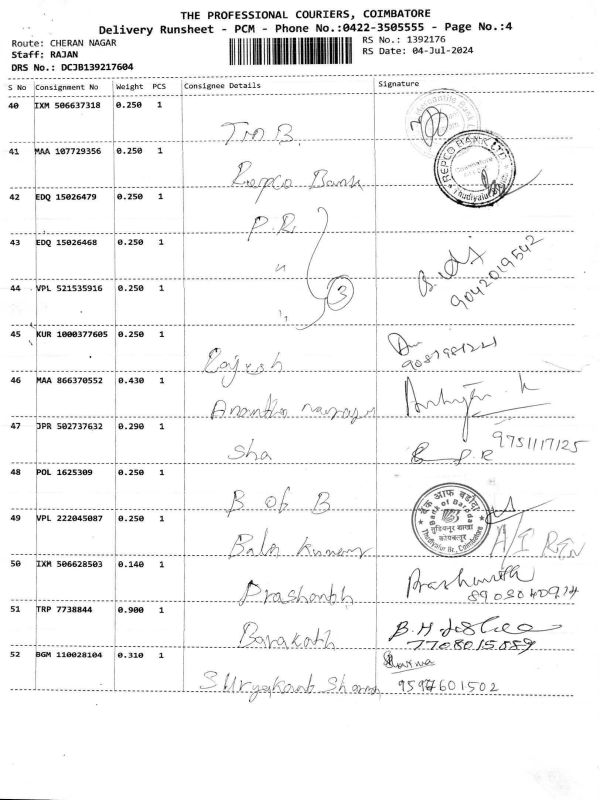 THE PROFESSIONAL COURIERS, COIMBATORE
Delivery Runsheet - PCM - Phone No.:0422-3505555 - Page No.:4
Route: CHERAN NAGAR
RS No.: 1392176
Staff: RAJAN
RS Date: 04-Jul-2024
DRS No.: DCJB139217604
S No Consignment No Weight PCS Consignee Details Signature
40 IXM 506637318 0.250 1
TMB.
41 MAA 107729356 0.250 1
Repco Bank
REPCO BANK LTD
Thudiyalur
42 EDQ 15026479 0.250 1
P.R
43 EDQ 15026468 0.250 1
"
9042019542
44 VPL 521535916 0.250 1
"
3
45 KUR 1000377605 0.250 1
Rajesh
46 MAA 866370552 0.430 1
Anantha narayan
47 JPR 502737632 0.290 1
Sha
9751117125
48 POL 1625309 0.250 1
B of B
बैंक ऑफ बड़ौदा
Bank of Baroda
Thudiyalur Br., Coimbatore
49 VPL 222045087 0.250 1
Bala Kumar
A/I RTN
50 IXM 506628503 0.140 1
Prashanth
Prashanth
51 TRP 7738844 0.900 1
Barakath
7708015889
52 BGM 110028104 0.310 1
Suryakant Sharma
Sharma